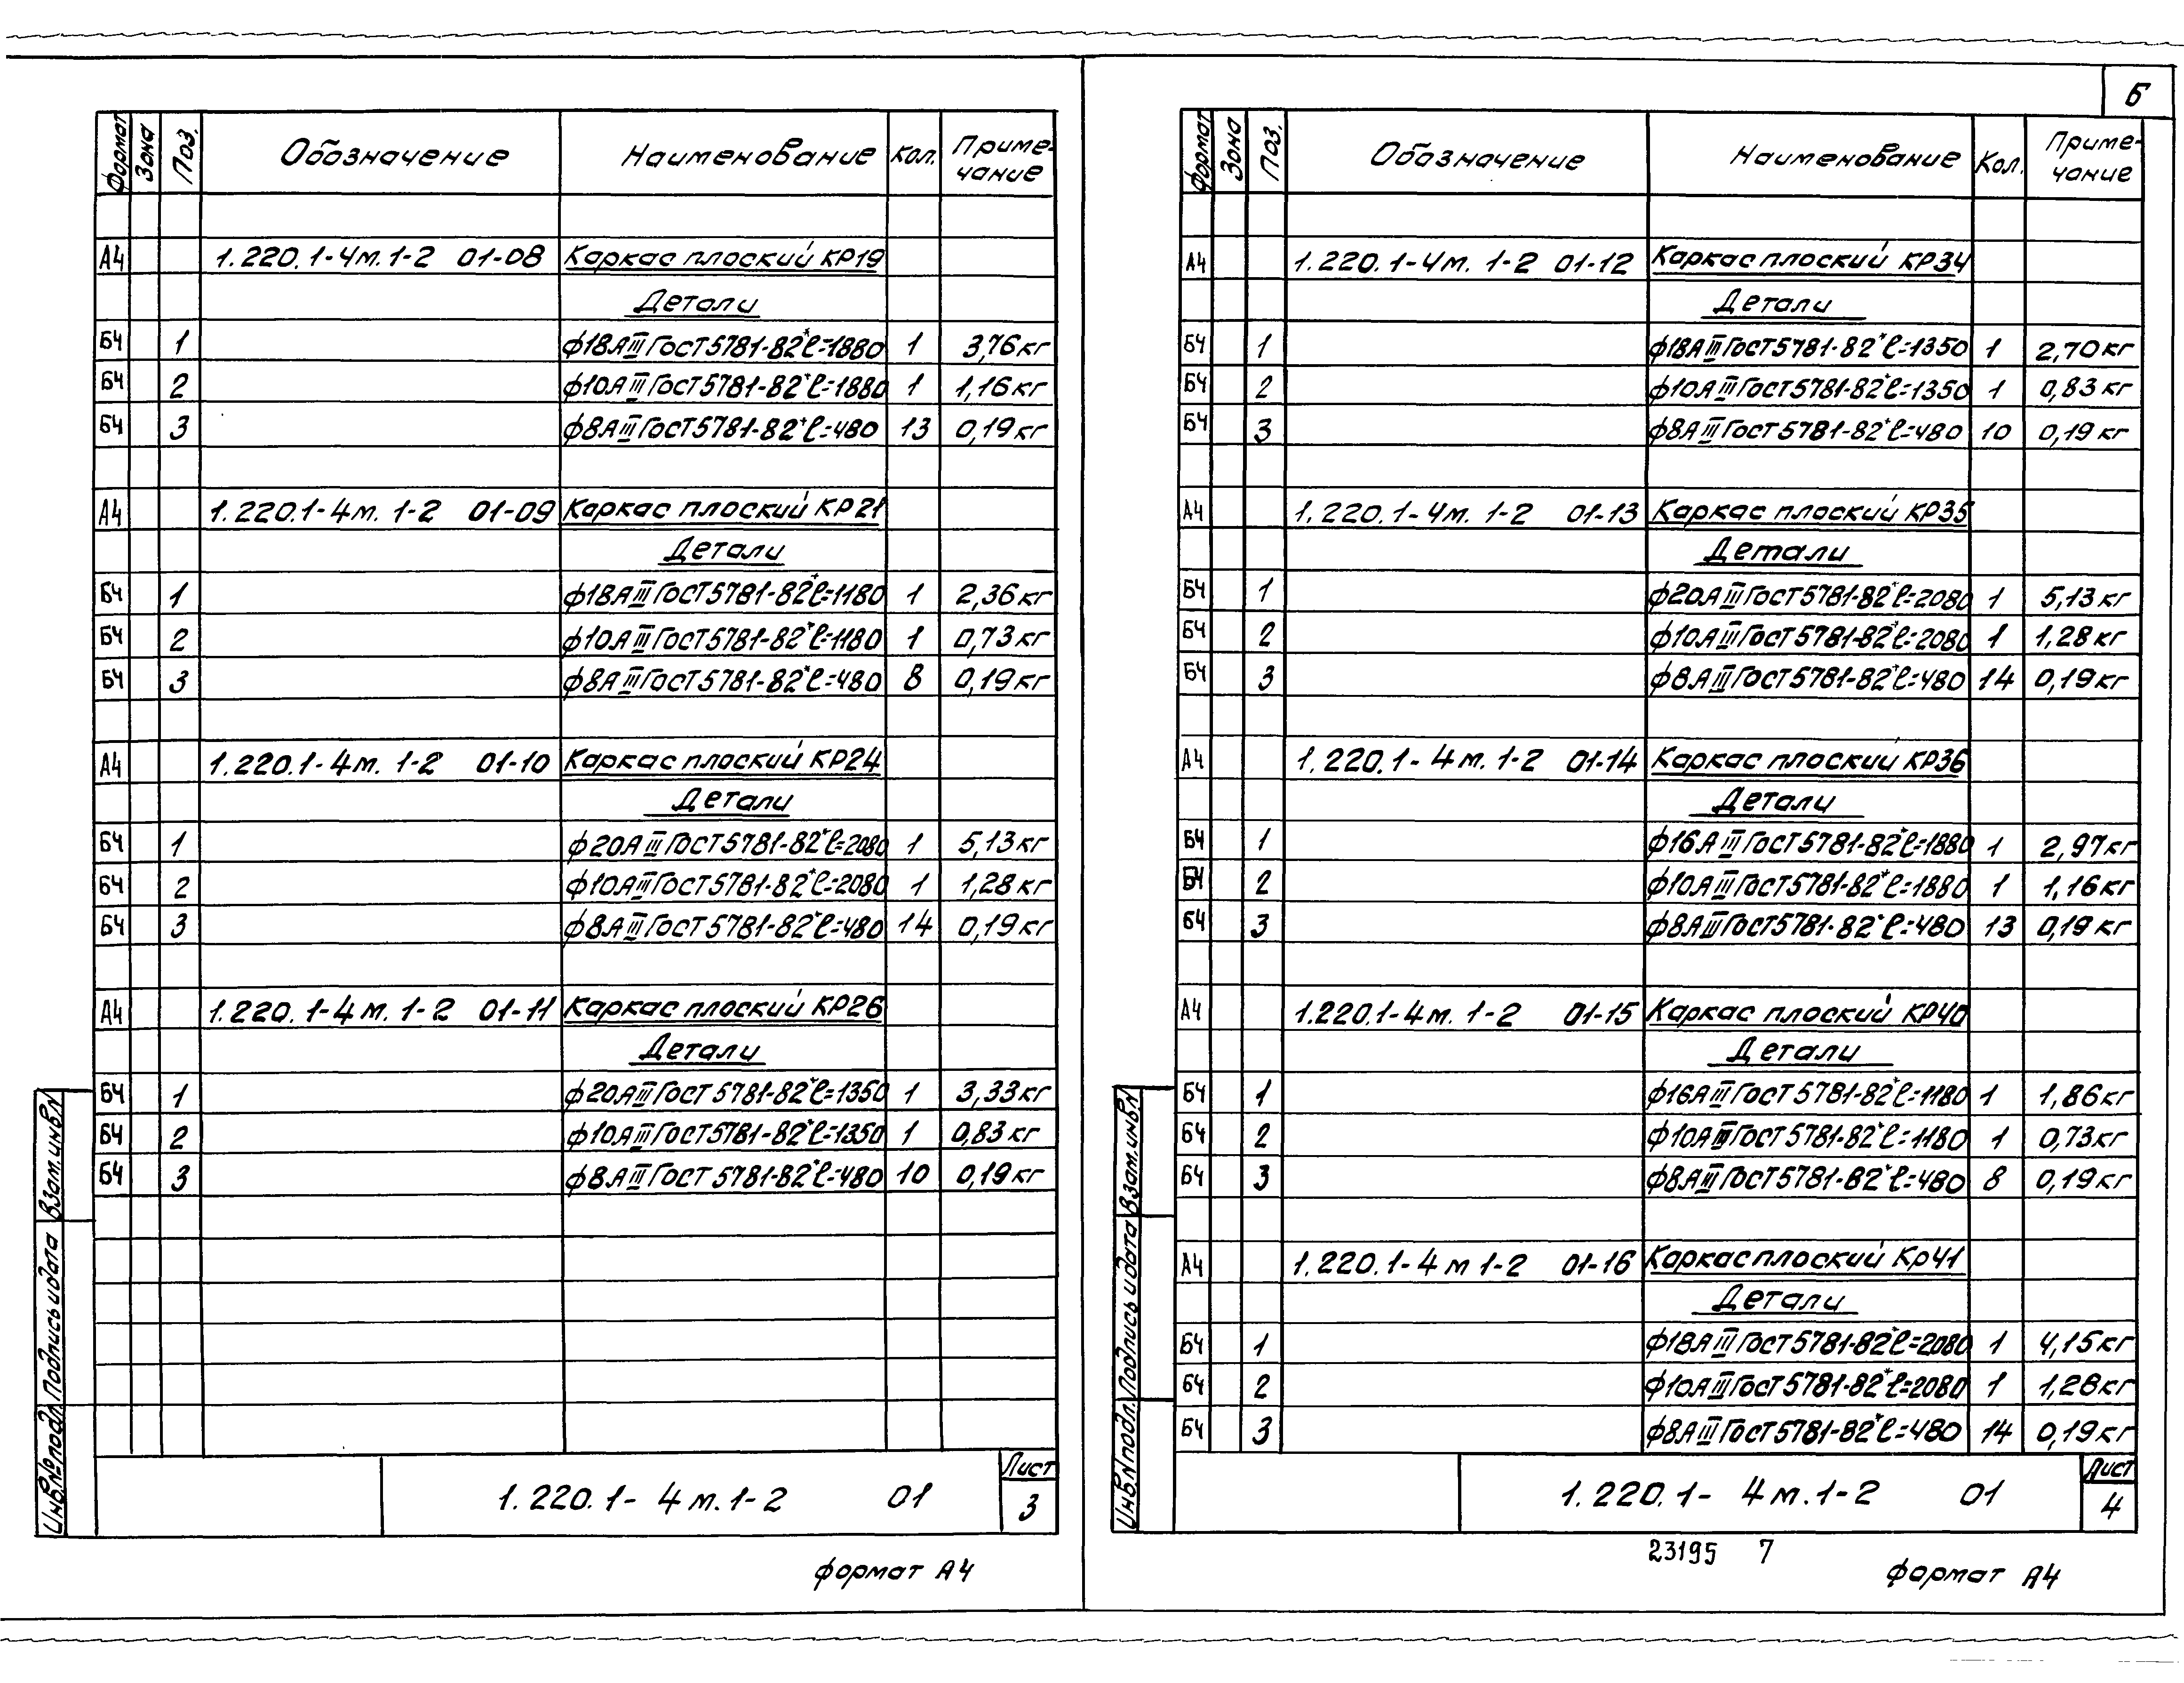 Формат Зона Поз. Обозначение Наименование Кол. Приме-
чание
А4 1.220.1-4м.1-2 01-08 Каркас плоский КР19
Детали
БЧ 1 ф18АIII ГОСТ5781-82* ℓ=1880 1 3,76кг
БЧ 2 ф10АIII ГОСТ5781-82* ℓ=1880 1 1,16кг
БЧ 3 ф8АIII ГОСТ5781-82* ℓ=480 13 0,19кг
А4 1.220.1-4м.1-2 01-09 Каркас плоский КР21
Детали
БЧ 1 ф18АIII ГОСТ5781-82* ℓ=1180 1 2,36кг
БЧ 2 ф10АIII ГОСТ5781-82* ℓ=1180 1 0,73кг
БЧ 3 ф8АIII ГОСТ5781-82* ℓ=480 8 0,19кг
А4 1.220.1-4м.1-2 01-10 Каркас плоский КР24
Детали
БЧ 1 ф20АIII ГОСТ5781-82* ℓ=2080 1 5,13кг
БЧ 2 ф10АIII ГОСТ5781-82* ℓ=2080 1 1,28кг
БЧ 3 ф8АIII ГОСТ5781-82* ℓ=480 14 0,19кг
А4 1.220.1-4м.1-2 01-11 Каркас плоский КР26
Детали
БЧ 1 ф20АIII ГОСТ5781-82* ℓ=1350 1 3,33кг
БЧ 2 ф10АIII ГОСТ5781-82* ℓ=1350 1 0,83кг
БЧ 3 ф8АIII ГОСТ5781-82* ℓ=480 10 0,19кг
Инв.№ подл. Подпись и дата Взам.инв.N
1.220.1-4м.1-2 01
Лист
3
формат А4
Б
Формат Зона Поз. Обозначение Наименование Кол. Приме-
чание
А4 1.220.1-4м.1-2 01-12 Каркас плоский КР34
Детали
БЧ 1 ф18АIII ГОСТ5781-82* ℓ=1350 1 2,70кг
БЧ 2 ф10АIII ГОСТ5781-82* ℓ=1350 1 0,83кг
БЧ 3 ф8АIII ГОСТ5781-82* ℓ=480 10 0,19кг
А4 1.220.1-4м.1-2 01-13 Каркас плоский КР35
Детали
БЧ 1 ф20АIII ГОСТ5781-82* ℓ=2080 1 5,13кг
БЧ 2 ф10АIII ГОСТ5781-82* ℓ=2080 1 1,28кг
БЧ 3 ф8АIII ГОСТ5781-82* ℓ=480 14 0,19кг
А4 1.220.1-4м.1-2 01-14 Каркас плоский КР36
Детали
БЧ 1 ф16АIII ГОСТ5781-82* ℓ=1880 1 2,97кг
БЧ 2 ф10АIII ГОСТ5781-82* ℓ=1880 1 1,16кг
БЧ 3 ф8АIII ГОСТ5781-82* ℓ=480 13 0,19кг
А4 1.220.1-4м.1-2 01-15 Каркас плоский КР40
Детали
БЧ 1 ф16АIII ГОСТ5781-82* ℓ=1180 1 1,86кг
БЧ 2 ф10АIII ГОСТ5781-82* ℓ=1180 1 0,73кг
БЧ 3 ф8АIII ГОСТ5781-82* ℓ=480 8 0,19кг
А4 1.220.1-4м 1-2 01-16 Каркас плоский Кр41
Детали
БЧ 1 ф18АIII ГОСТ5781-82* ℓ=2080 1 4,15кг
БЧ 2 ф10АIII ГОСТ5781-82* ℓ=2080 1 1,28кг
БЧ 3 ф8АIII ГОСТ5781-82* ℓ=480 14 0,19кг
Инв.N подл. Подпись и дата Взам.инв.N
1.220.1-4м.1-2 01
Лист
4
23195 7
формат А4